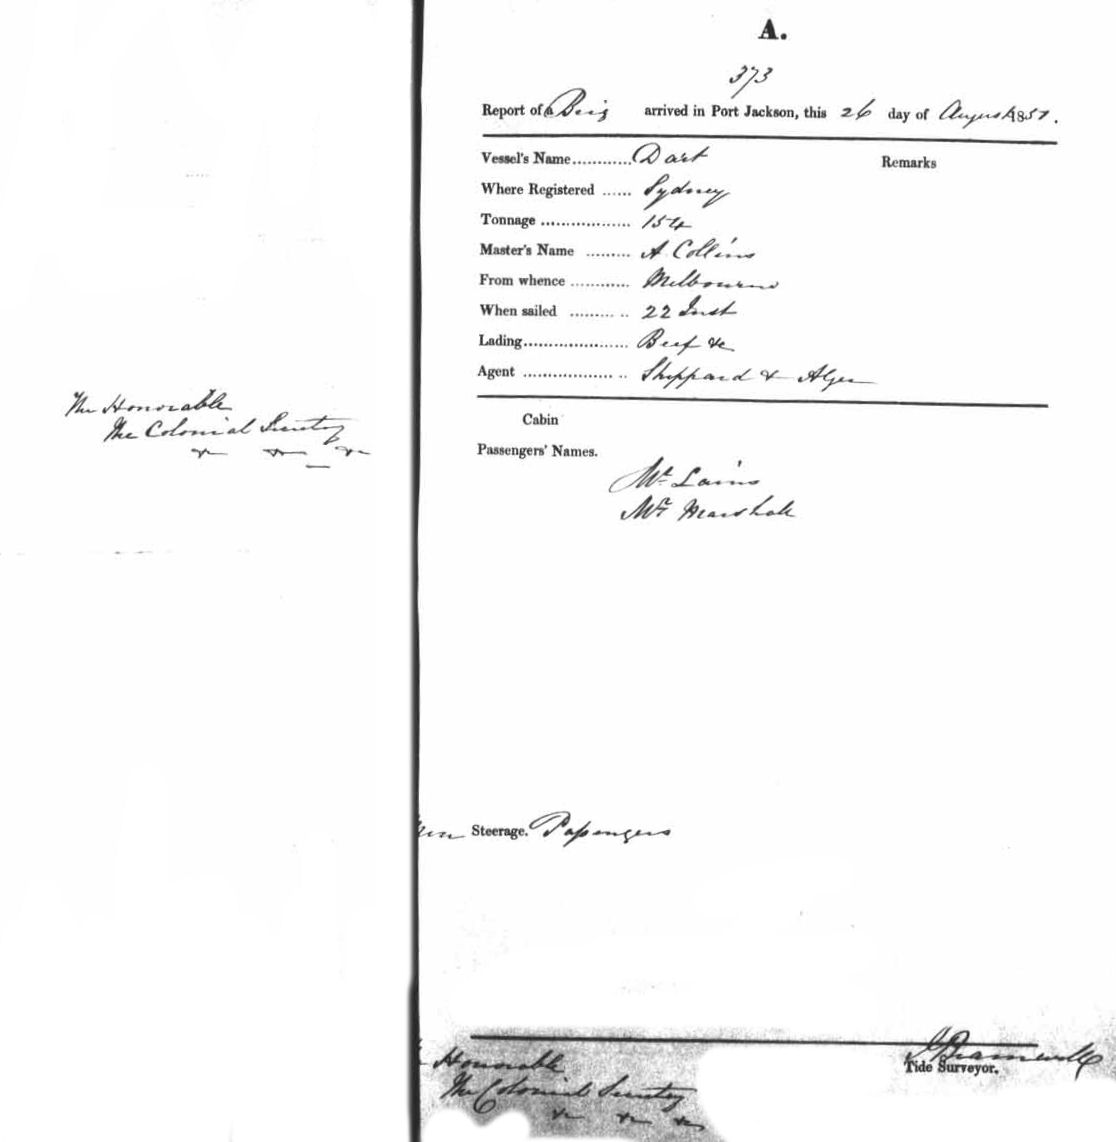 The Honorable
The Colonial Secretary
&c &c &c
A.
373
Report of a Brig arrived in Port Jackson, this 26 day of August 1851.
Vessel's Name............ Dart Remarks
Where Registered ...... Sydney
Tonnage .................. 154
Master's Name ......... A Collins
From whence ............ Melbourne
When sailed ......... .. 22 Inst
Lading..................... Beef &c
Agent .................. .. Sheppard & Alger
Cabin
Passengers' Names.
Mr
Mr Marshall
Steerage. Passengers
J Bramwell
Tide Surveyor.
Honorable
The Colonial Secretary
&c &c &c